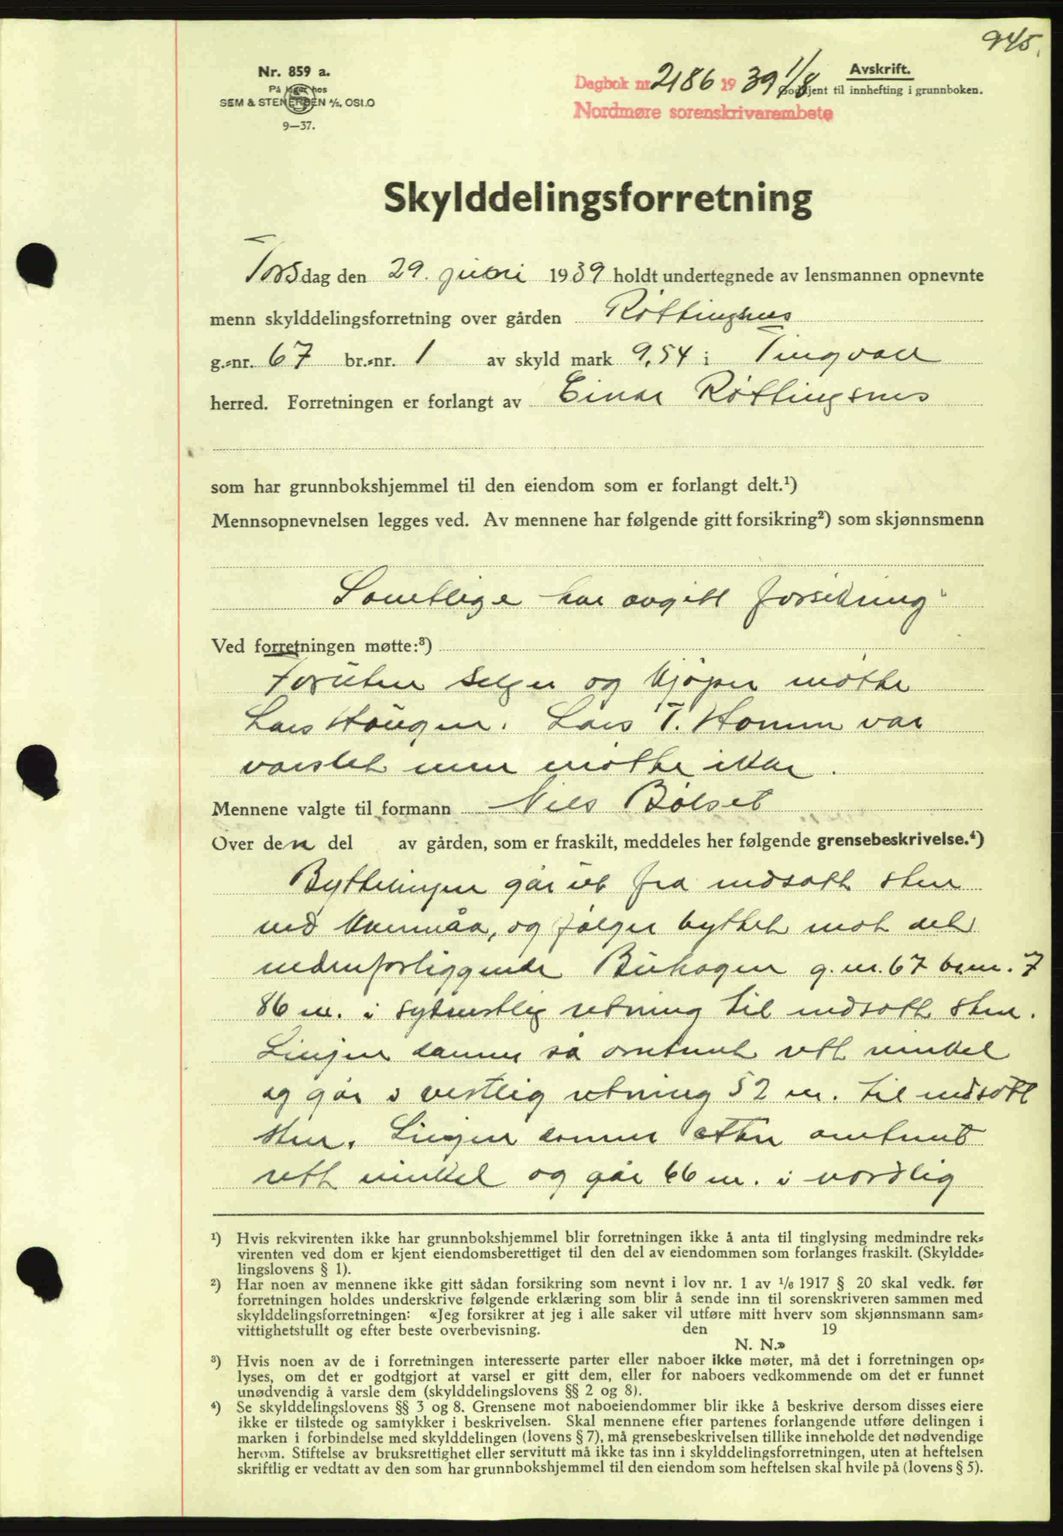 945.
Nr. 859 a.
På lager hos
SEM & STENERSEN A/S, OSLO
9—37.
Dagbok nr. 2186 1939 1/8
Nordmøre sorenskrivarembete
Avskrift.
Godkjent til innhefting i grunnboken.
Skylddelingsforretning
Torsdag den 29. juni 1939 holdt undertegnede av lensmannen opnevnte
menn skylddelingsforretning over gården Røttingsnes
g.-nr. 67 br.-nr. 1 av skyld mark 9,54 i Tingvoll
herred. Forretningen er forlangt av Einar Røttingsnes
som har grunnbokshjemmel til den eiendom som er forlangt delt.¹)
Mennsopnevnelsen legges ved. Av mennene har følgende gitt forsikring²) som skjønnsmenn
Samtlige har avgitt forsikring.
Ved forretningen møtte:³)
Foruten selger og kjøper møtte
Lars Haugen. Lars T. Hamn var
varslet men møtte ikke.
Mennene valgte til formann Nils Bølset
Over den del av gården, som er fraskilt, meddeles her følgende grensebeskrivelse.⁴)
Byttelinjen går ut fra nedsatt sten
ved Kvennåa, og følger byttet mot det
nedenforliggende Bukagen g.nr. 67 b.nr. 7
86 m. i sydvestlig retning til nedsatt sten.
Linjen danner så omtrent rett vinkel
og går i vestlig retning 52 m. til nedsatt
sten. Linjen danner atter omtrent
rett vinkel og går 66 m. i nordlig
¹) Hvis rekvirenten ikke har grunnbokshjemmel blir forretningen ikke å anta til tinglysing medmindre rek-
virenten ved dom er kjent eiendomsberettiget til den del av eiendommen som forlanges fraskilt. (Skyldde-
lingslovens § 1).
²) Har noen av mennene ikke gitt sådan forsikring som nevnt i lov nr. 1 av 1/6 1917 § 20 skal vedk. før
forretningen holdes underskrive følgende erklæring som blir å sende inn til sorenskriveren sammen med
skylddelingsforretningen: «Jeg forsikrer at jeg i alle saker vil utføre mitt hverv som skjønnsmann sam-
vittighetsfullt og efter beste overbevisning. den 19
N. N.»
³) Hvis noen av de i forretningen interesserte parter eller naboer ikke møter, må det i forretningen op-
lyses, om det er godtgjort at varsel er gitt dem, eller for naboers vedkommende om det er funnet
unødvendig å varsle dem (skylddelingslovens §§ 2 og 8).
⁴) Se skylddelingslovens §§ 3 og 8. Grensene mot naboeiendommer blir ikke å beskrive dersom disses eiere
ikke er tilstede og samtykker i beskrivelsen. Skal mennene efter partenes forlangende utføre delingen i
marken i forbindelse med skylddelingen (lovens § 7), må grensebeskrivelsen tillike inneholde det nødvendige
herom. Stiftelse av bruksrettighet eller servitutt må ikke tas inn i skylddelingsforretningen, uten at heftelsen
skriftlig er vedtatt av den som har grunnbokshjemmel til den eiendom som heftelsen skal hvile på (lovens § 5).